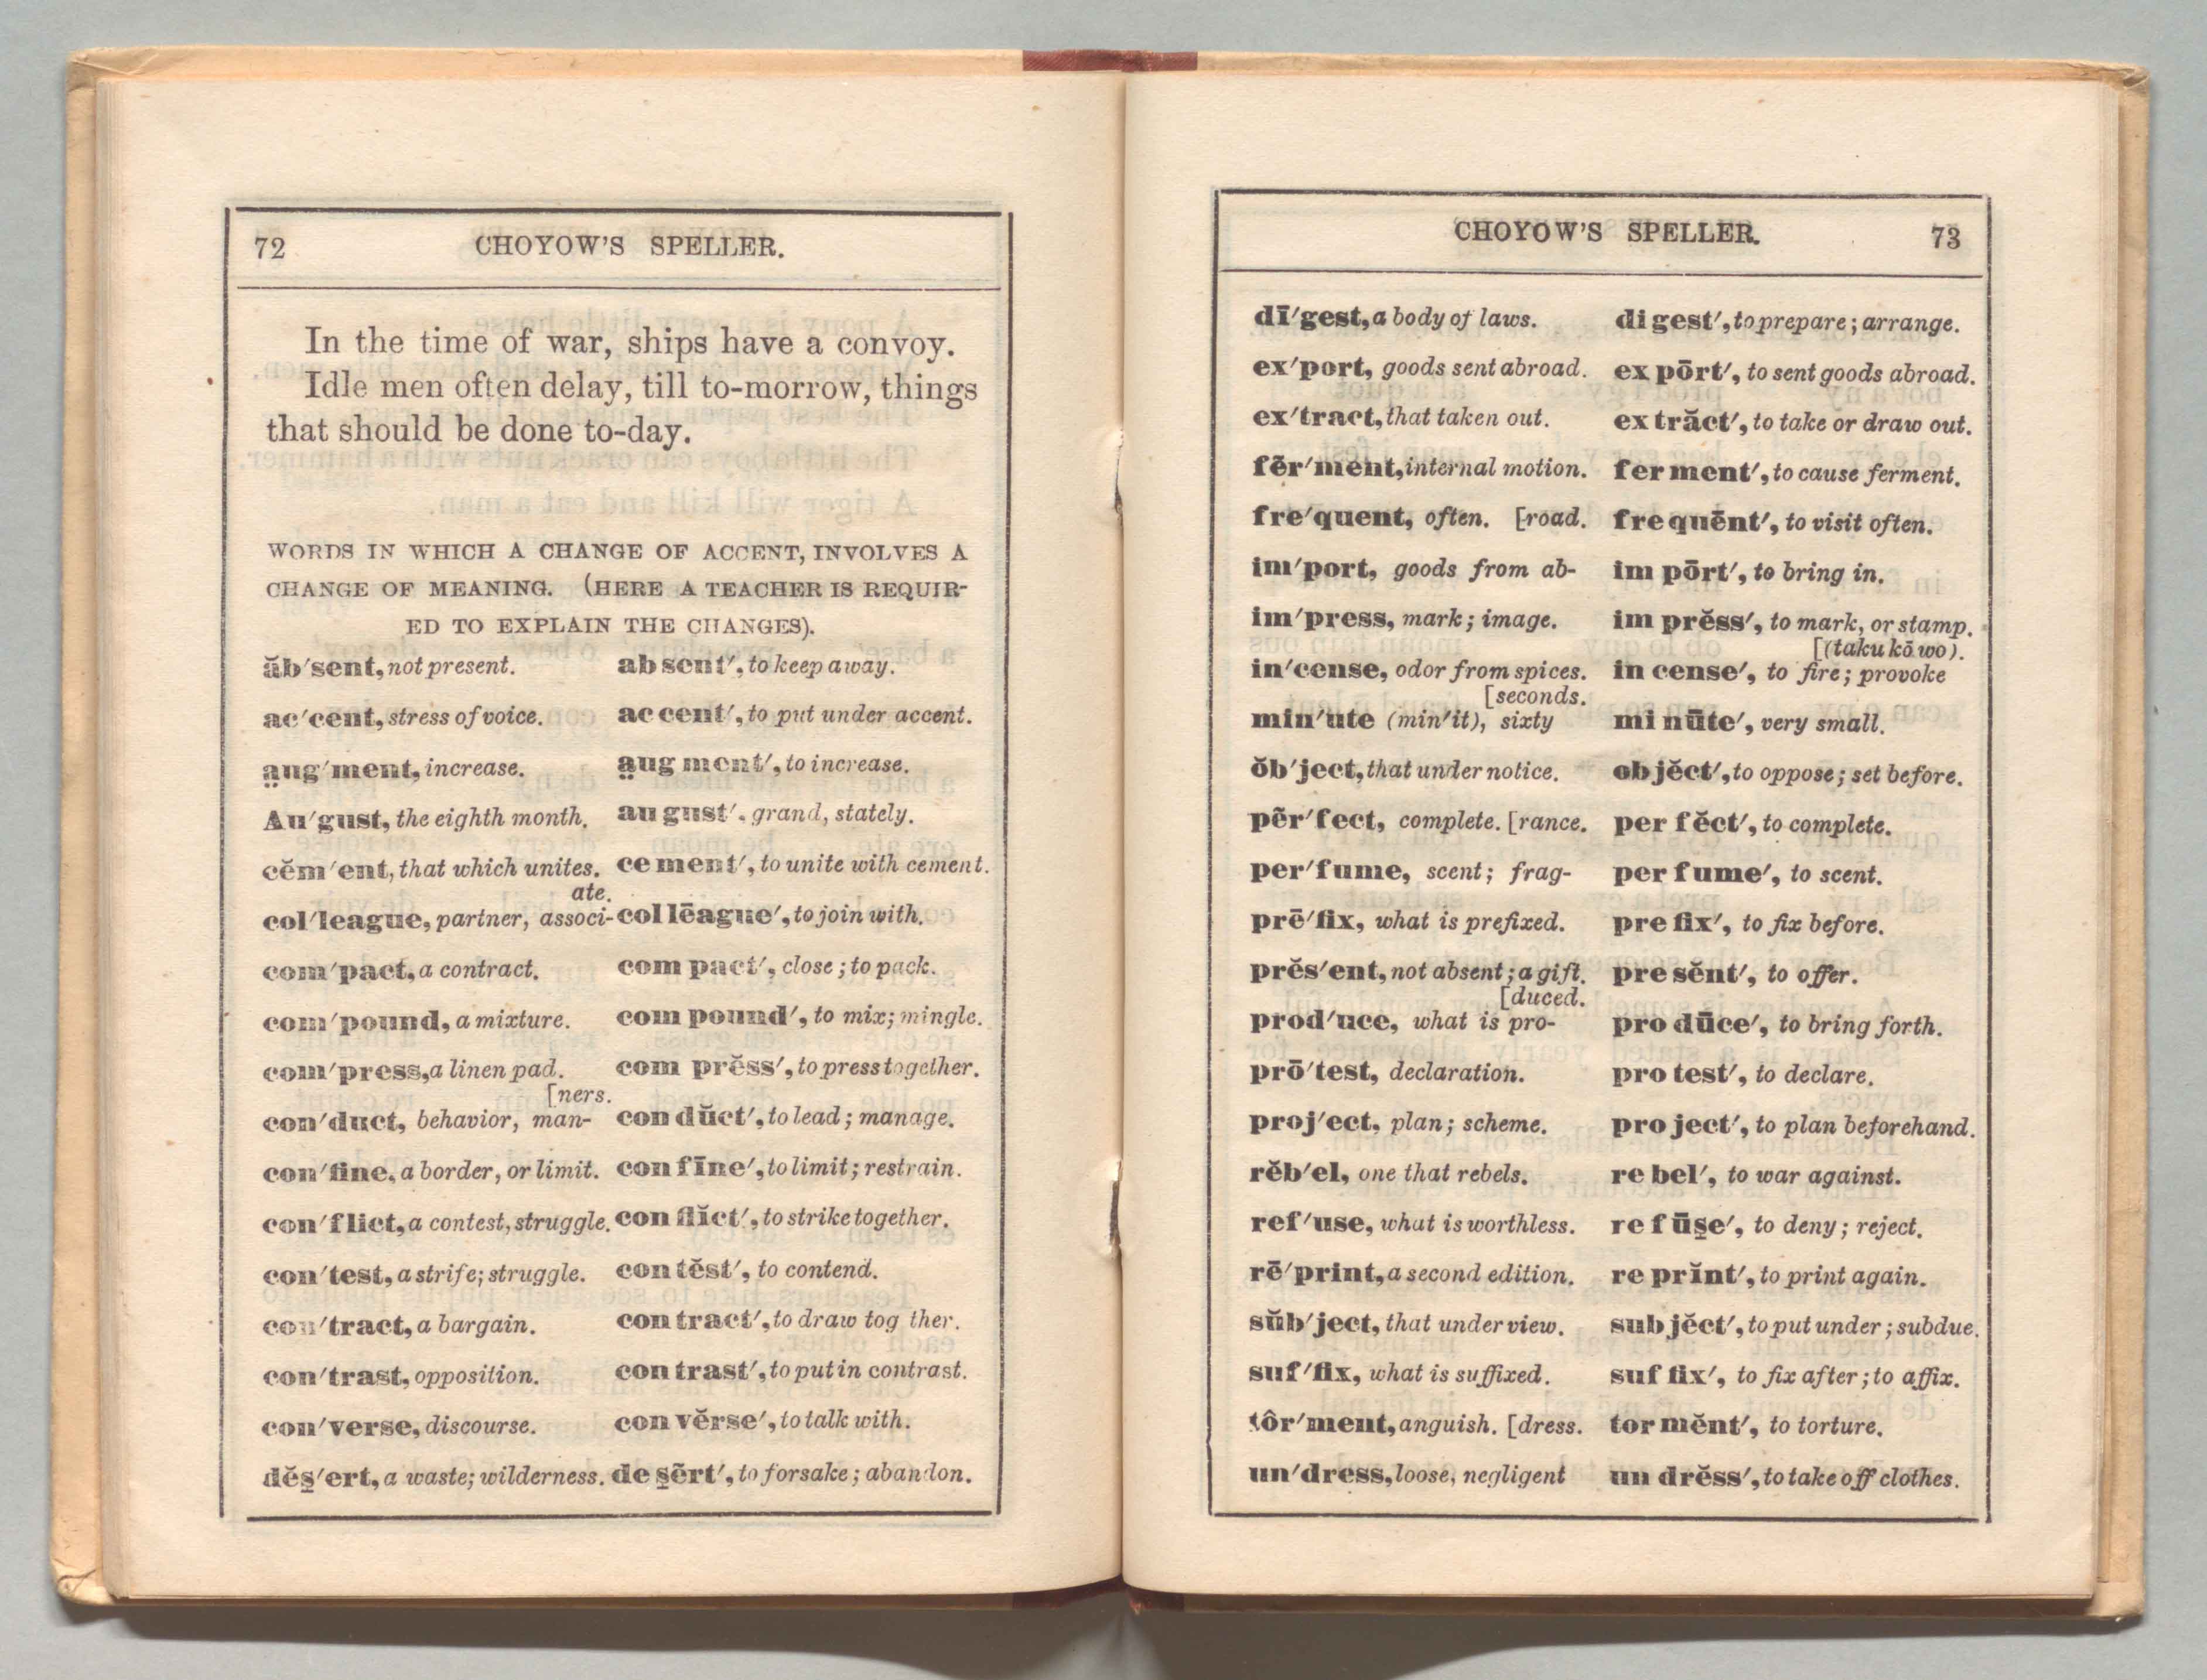 72 CHOYOW'S SPELLER.
In the time of war, ships have a convoy.
Idle men often delay, till to-morrow, things
that should be done to-day.
WORDS IN WHICH A CHANGE OF ACCENT, INVOLVES A
CHANGE OF MEANING. (HERE A TEACHER IS REQUIR-
ED TO EXPLAIN THE CHANGES).
ăb′sent, not present. ab sent′, to keep away.
ac′cent, stress of voice. ac cent′, to put under accent.
a̤ug′ment, increase. a̤ug ment′, to increase.
Au′gust, the eighth month. au gust′, grand, stately.
cĕm′ent, that which unites. ce ment′, to unite with cement.
ate.
col′league, partner, associ- col lēague′, to join with.
com′pact, a contract. com pact′, close; to pack.
com′pound, a mixture. com pound′, to mix; mingle.
com′press, a linen pad. com prĕss′, to press together.
[ners.
con′duct, behavior, man- con dŭct′, to lead; manage.
con′fine, a border, or limit. con fīne′, to limit; restrain.
con′flict, a contest, struggle. con flĭct′, to strike together.
con′test, a strife; struggle. con tĕst′, to contend.
con′tract, a bargain. con tract′, to draw tog ther.
con′trast, opposition. con trast′, to put in contrast.
con′verse, discourse. con vĕrse′, to talk with.
dĕs̱′ert, a waste; wilderness. de s̱ẽrt′, to forsake; abandon.
CHOYOW'S SPELLER. 73
dī′gest, a body of laws. di gest′, to prepare; arrange.
ex′port, goods sent abroad. ex pōrt′, to sent goods abroad.
ex′tract, that taken out. ex trăct′, to take or draw out.
fẽr′ment, internal motion. fer ment′, to cause ferment.
fre′quent, often. [road. fre quĕnt′, to visit often.
im′port, goods from ab- im pōrt′, to bring in.
im′press, mark; image. im prĕss′, to mark, or stamp.
[(taku kō wo).
in′cense, odor from spices. in cense′, to fire; provoke
[seconds.
min′ute (min′it), sixty mi nūte′, very small.
ŏb′ject, that under notice. ob jĕct′, to oppose; set before.
pẽr′fect, complete. [rance. per fĕct′, to complete.
per′fume, scent; frag- per fume′, to scent.
prē′fix, what is prefixed. pre fix′, to fix before.
prĕs′ent, not absent; a gift. pre sĕnt′, to offer.
[duced.
prod′uce, what is pro- pro dūce′, to bring forth.
prō′test, declaration. pro test′, to declare.
proj′ect, plan; scheme. pro ject′, to plan beforehand.
rĕb′el, one that rebels. re bel′, to war against.
ref′use, what is worthless. re fūs̱e′, to deny; reject.
rē′print, a second edition. re prĭnt′, to print again.
sŭb′ject, that under view. sub jĕct′, to put under; subdue.
suf′fix, what is suffixed. suf fix′, to fix after; to affix.
tôr′ment, anguish. [dress. tor mĕnt′, to torture.
un′dress, loose, negligent un drĕss′, to take off clothes.